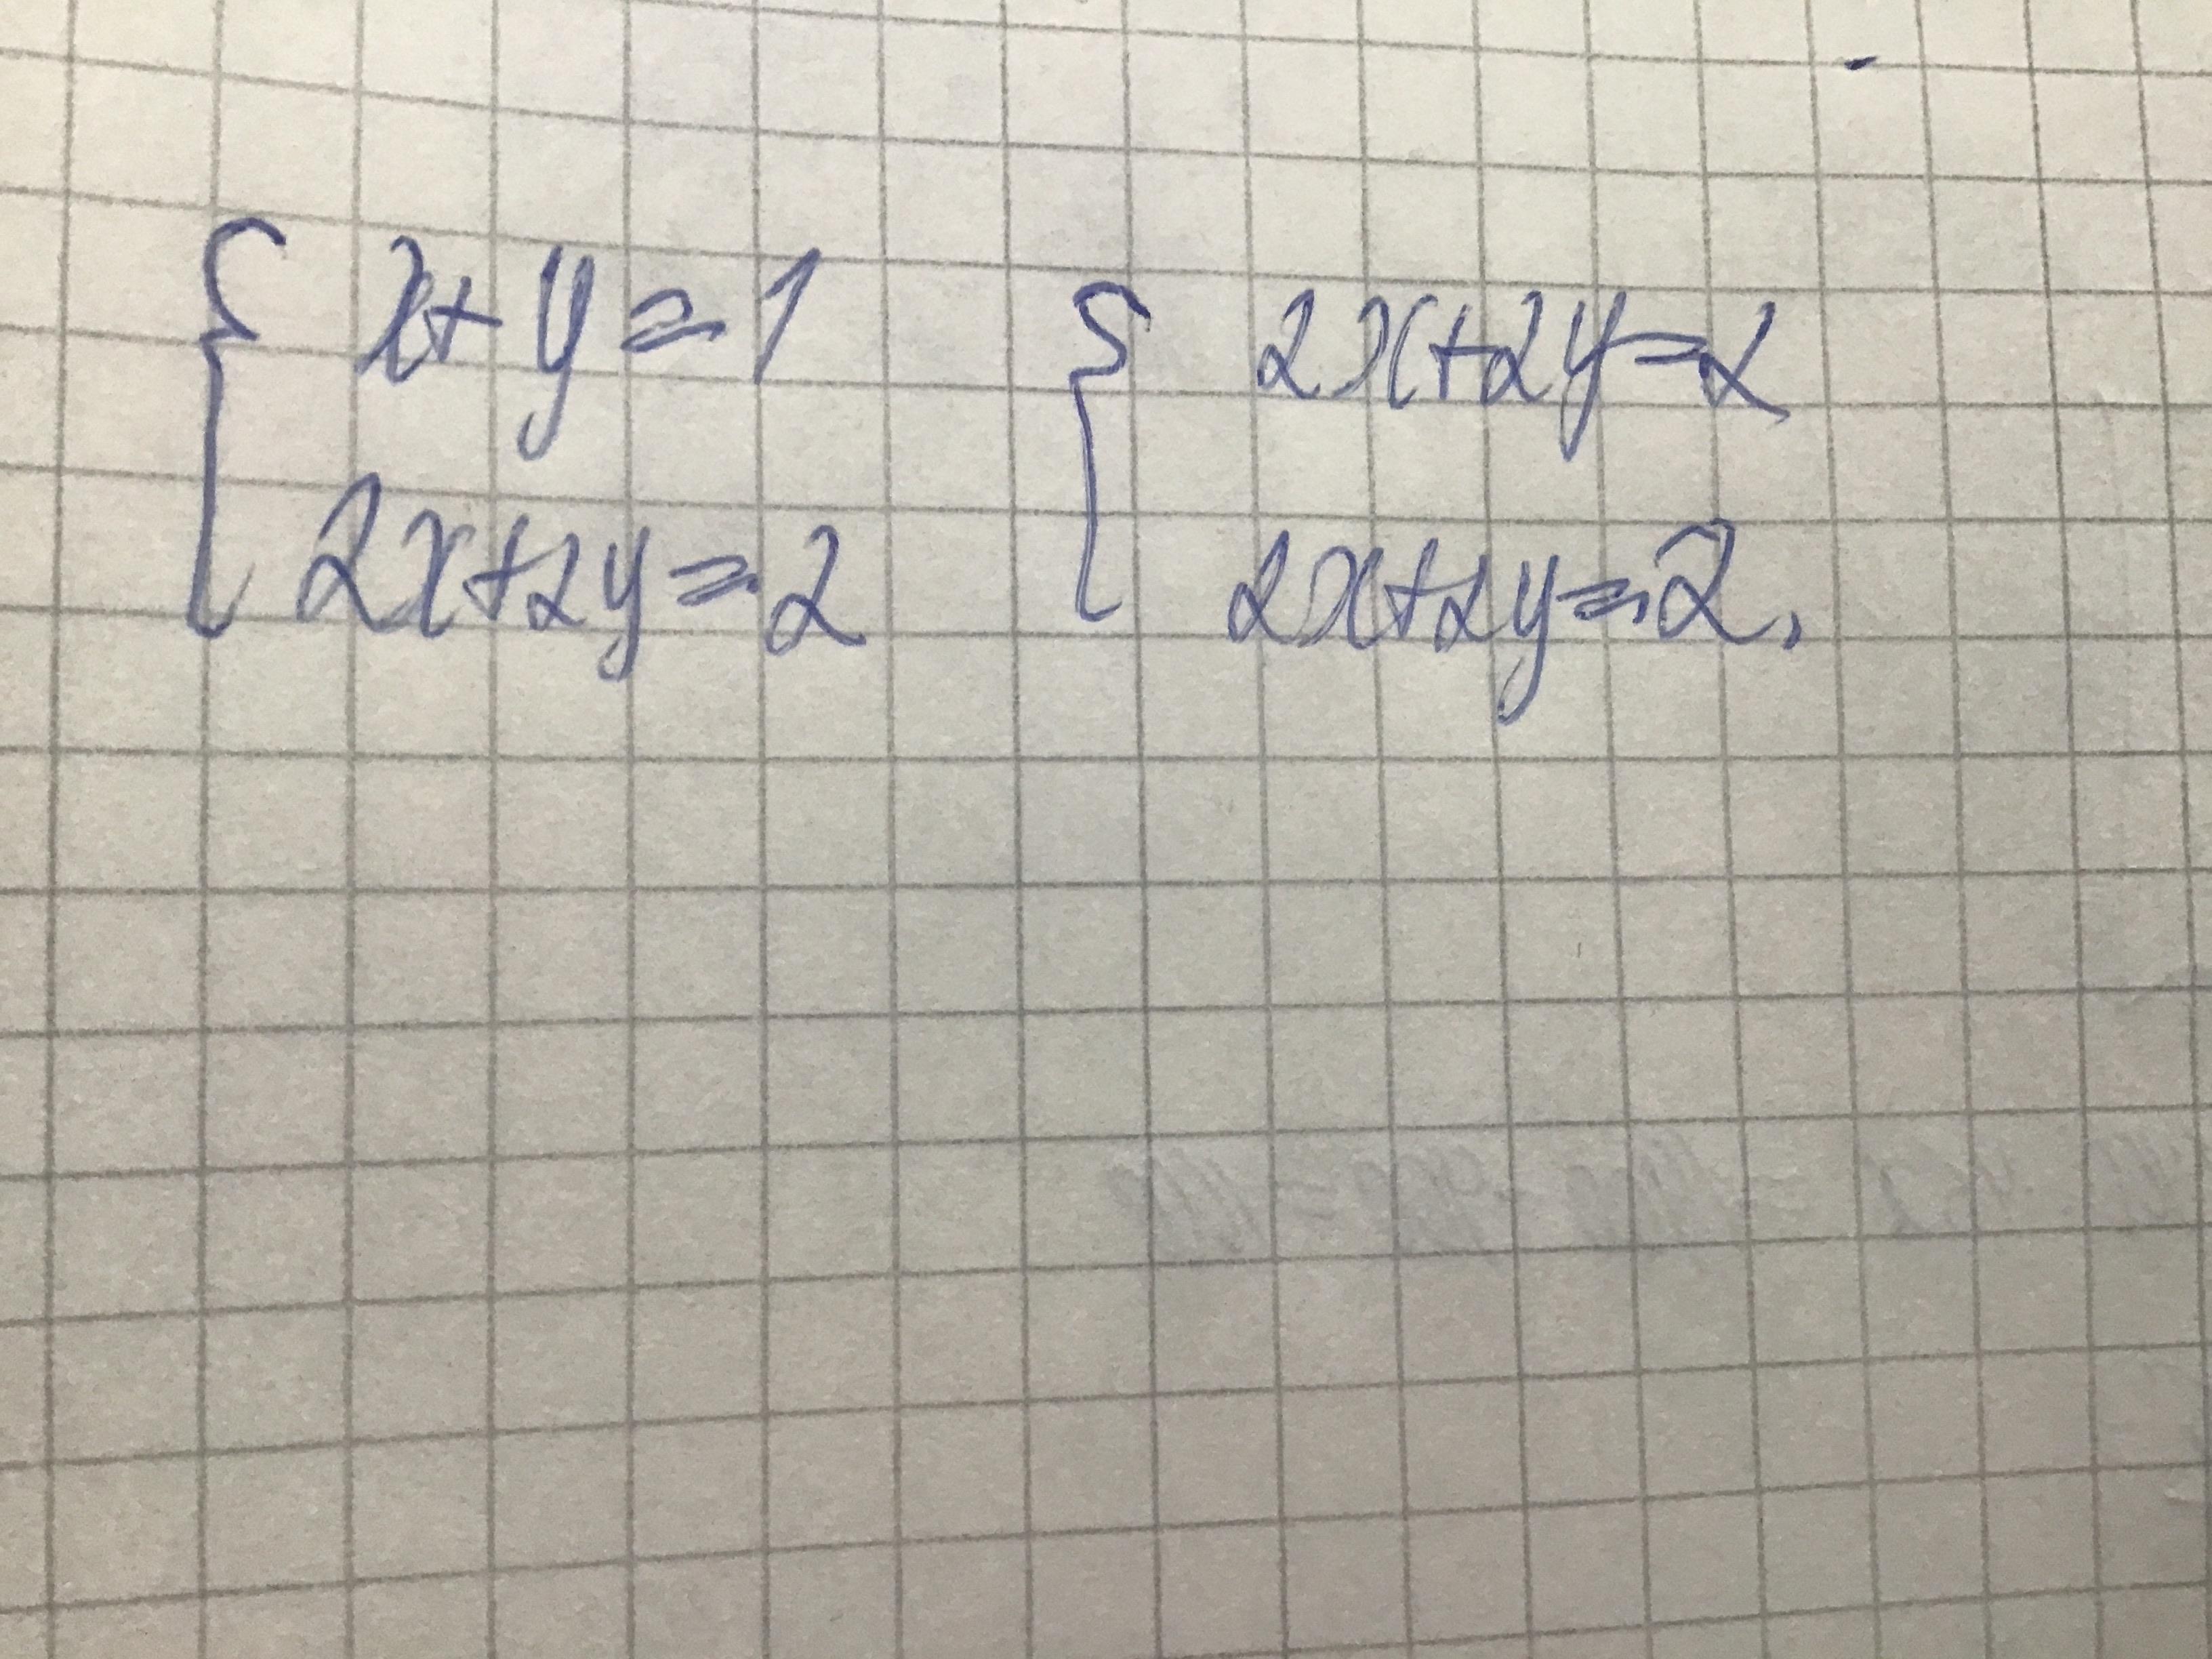 x+y=1
2x+2y=2
2x+2y=2
2x+2y=2.